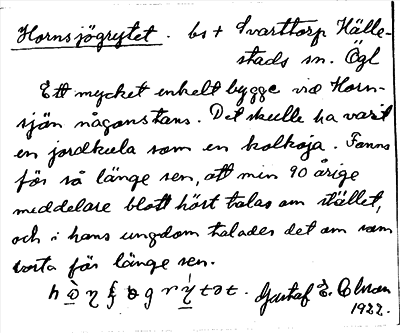 Hornsjögrytet. bs + Svarttorp Hälle-
stads sn. Ögl
Ett mycket enkelt bygge vid Horn-
sjön någonstans. Det skulle ha varit
en jordkula som en kolkoja. Fanns
för så länge sen, att min 90 årige
meddelare blott hört talas om stället,
och i hans ungdom talades det om som
borta för länge sen.
Gustaf E. Olman
1922.